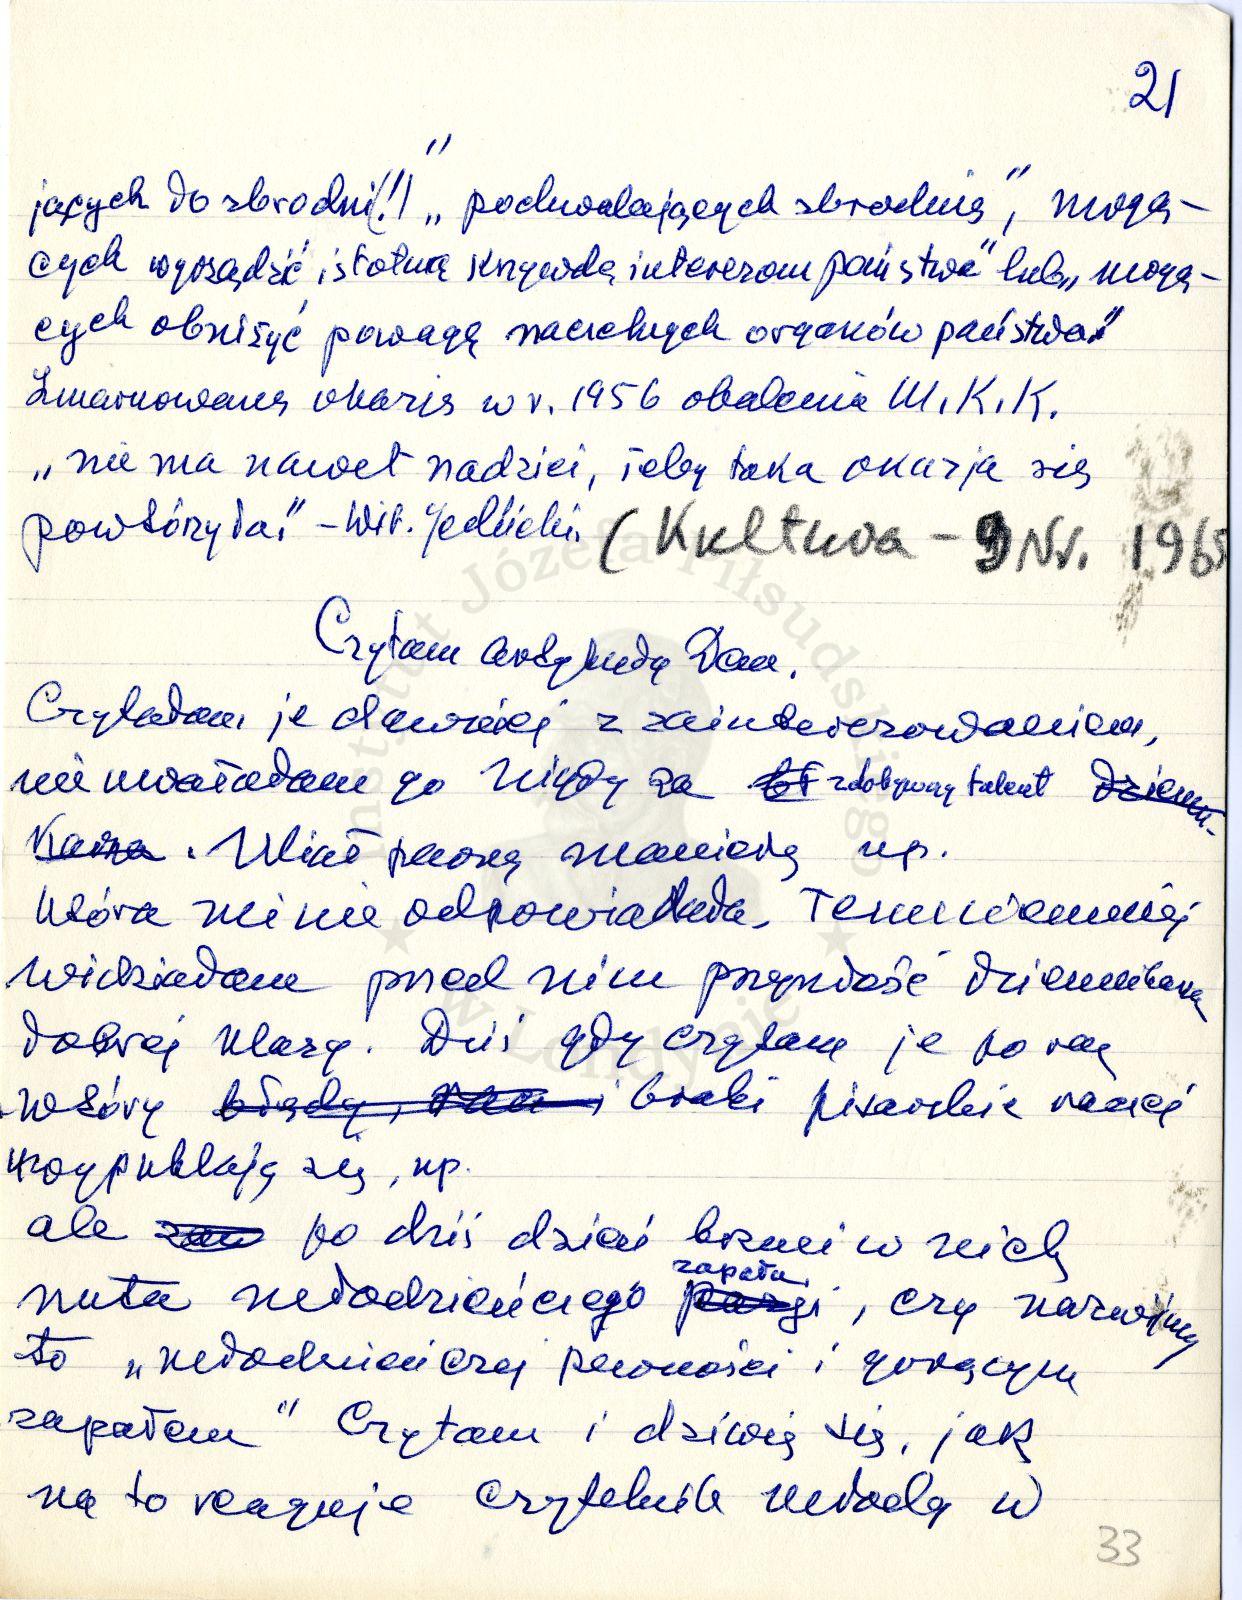 21
jących do zbrodni(!)" „pochwalających zbrodnię", mogą-
cych wyrządzić istotną krzywdę interesom państwa" lub „mogą-
cych obniżyć powagę naczelnych organów państwa."
Zmarnowaną okazję w r. 1956 obalenia M.K.K.
„nie ma nawet nadziei, żeby taka okazja się
powtórzyła." – Wit. Jedlicki. (Kultura – 9 Nr. 1965
Czytam artykuły Dan.
Czytałam je dawniej z zainteresowaniem,
nie uważałam go nigdy za zdobywczy talent dzienni-
karza. Miał pewną manierę np.
która mi nie odpowiadała. Temniemniej
widziałam przed nim przyszłość dziennikarza
dobrej klasy. Dziś gdy czytam je po raz
wtóry błędy, i braki pisarskie raczej
wypuklają się, np.
ale po dziś dzień brzmi w nich
nuta młodzieńczego zapału, czy nazwijmy
to „młodzieńczej pewności i gorącym
zapałem" Czytam i dziwię się, jak
na to reaguje czytelnik młody w
33
Instytut Józefa Piłsudskiego
w Londynie